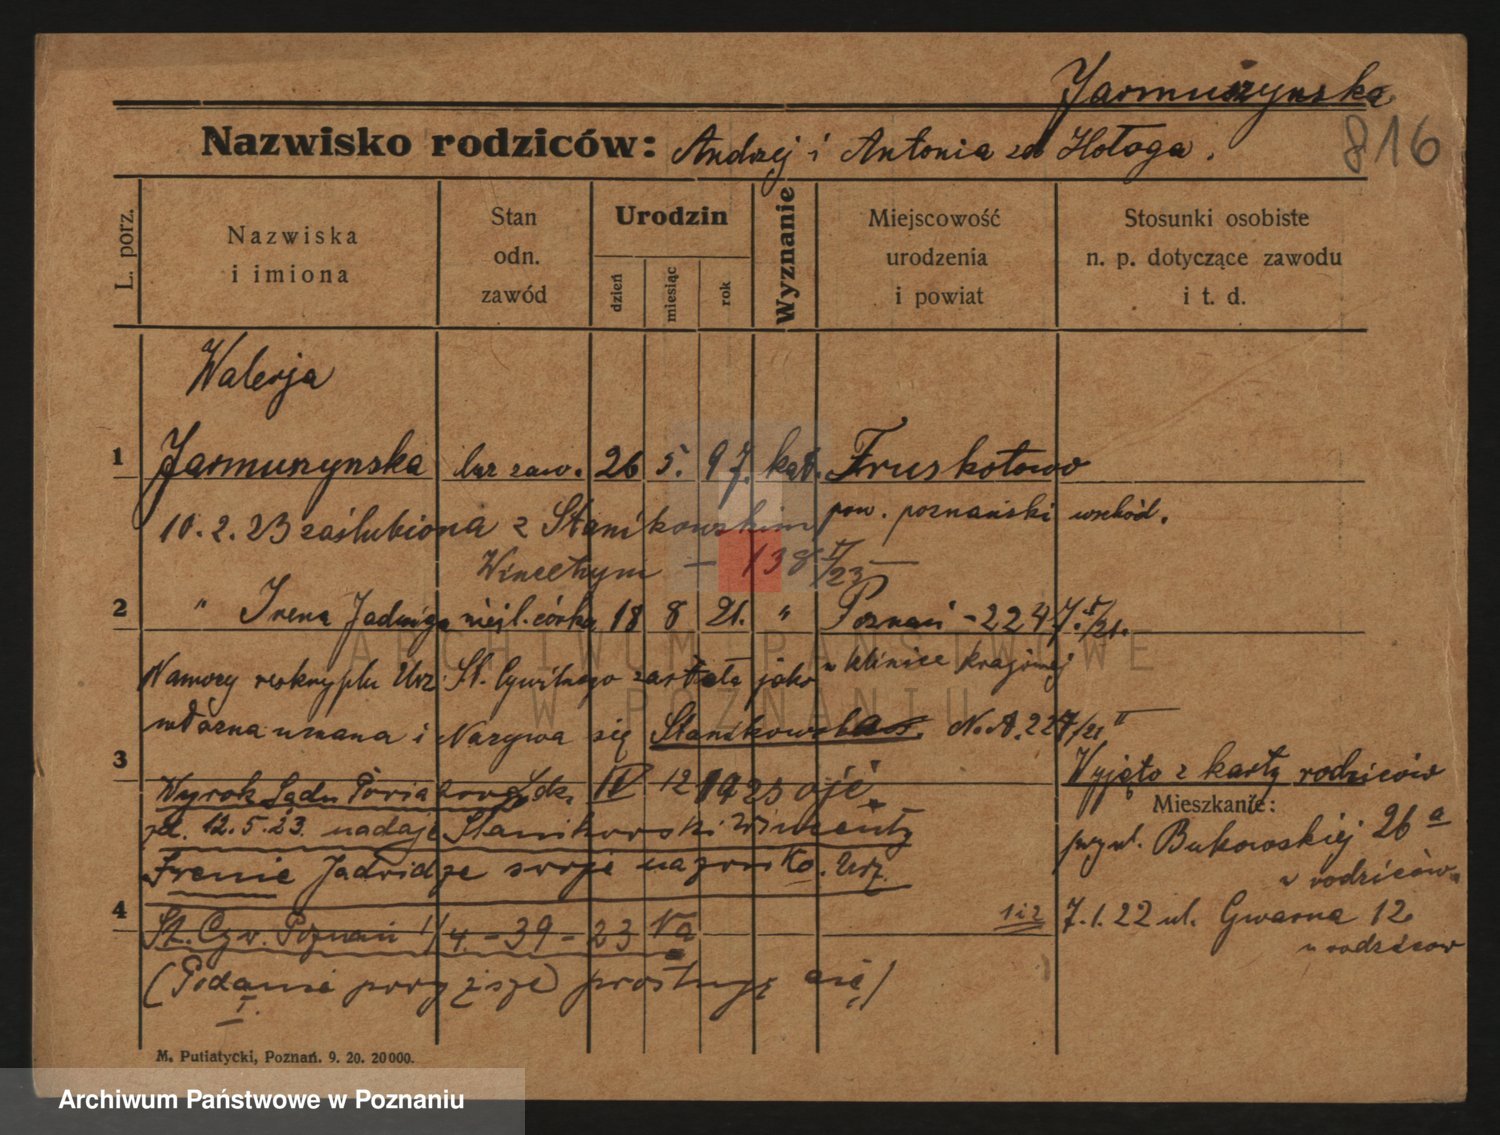 Jarmuszynska
Nazwisko rodziców: Andrzej i Antonia zd Hołoga.
816
L. porz.
Nazwiska
i imiona
Stan
odn.
zawód
Urodzin
dzień
miesiąc
rok
Wyznanie
Miejscowość
urodzenia
i powiat
Stosunki osobiste
n. p. dotyczące zawodu
i t. d.
Walerja
1 Jarmuszynska bez zaw. 26 5. 97. kat. Truskotowo
10.2.23 zaślubiona z Stanikowskim pow. poznański wschód.
Wincentym — 138 II/23 —
2 " Irena Jadwiga nieśl. córka 18 8 21. " Poznań - 2247.5/21.
w klinice krajowej
Na mocy reskryptu Urz. St. Cywilnego została jako
własna uznana i Nazywa się Stanikowska. N.A. 227/21 II
3
Wyrok Sądu Powiatowego IV 12 1925 ojć
zd. 12.5.23. nadaje Stanikowski Wincenty
Irenie Jadwidze swoje nazwisko. Urz.
4
St. Cyw. Poznań 11/4. - 39 - 23 Va
(Podanie powyższe prostuję się)
I.
Wyjęto z karty rodziców
Mieszkanie:
przyul. Bukowskiej 26 a
u rodziców
1 i 2
7.1.22 ul. Gwarna 12
u rodziców
M. Putiatycki, Poznań. 9. 20. 20000.
ARCHIWUM PAŃSTWOWE
W POZNANIU
Archiwum Państwowe w Poznaniu